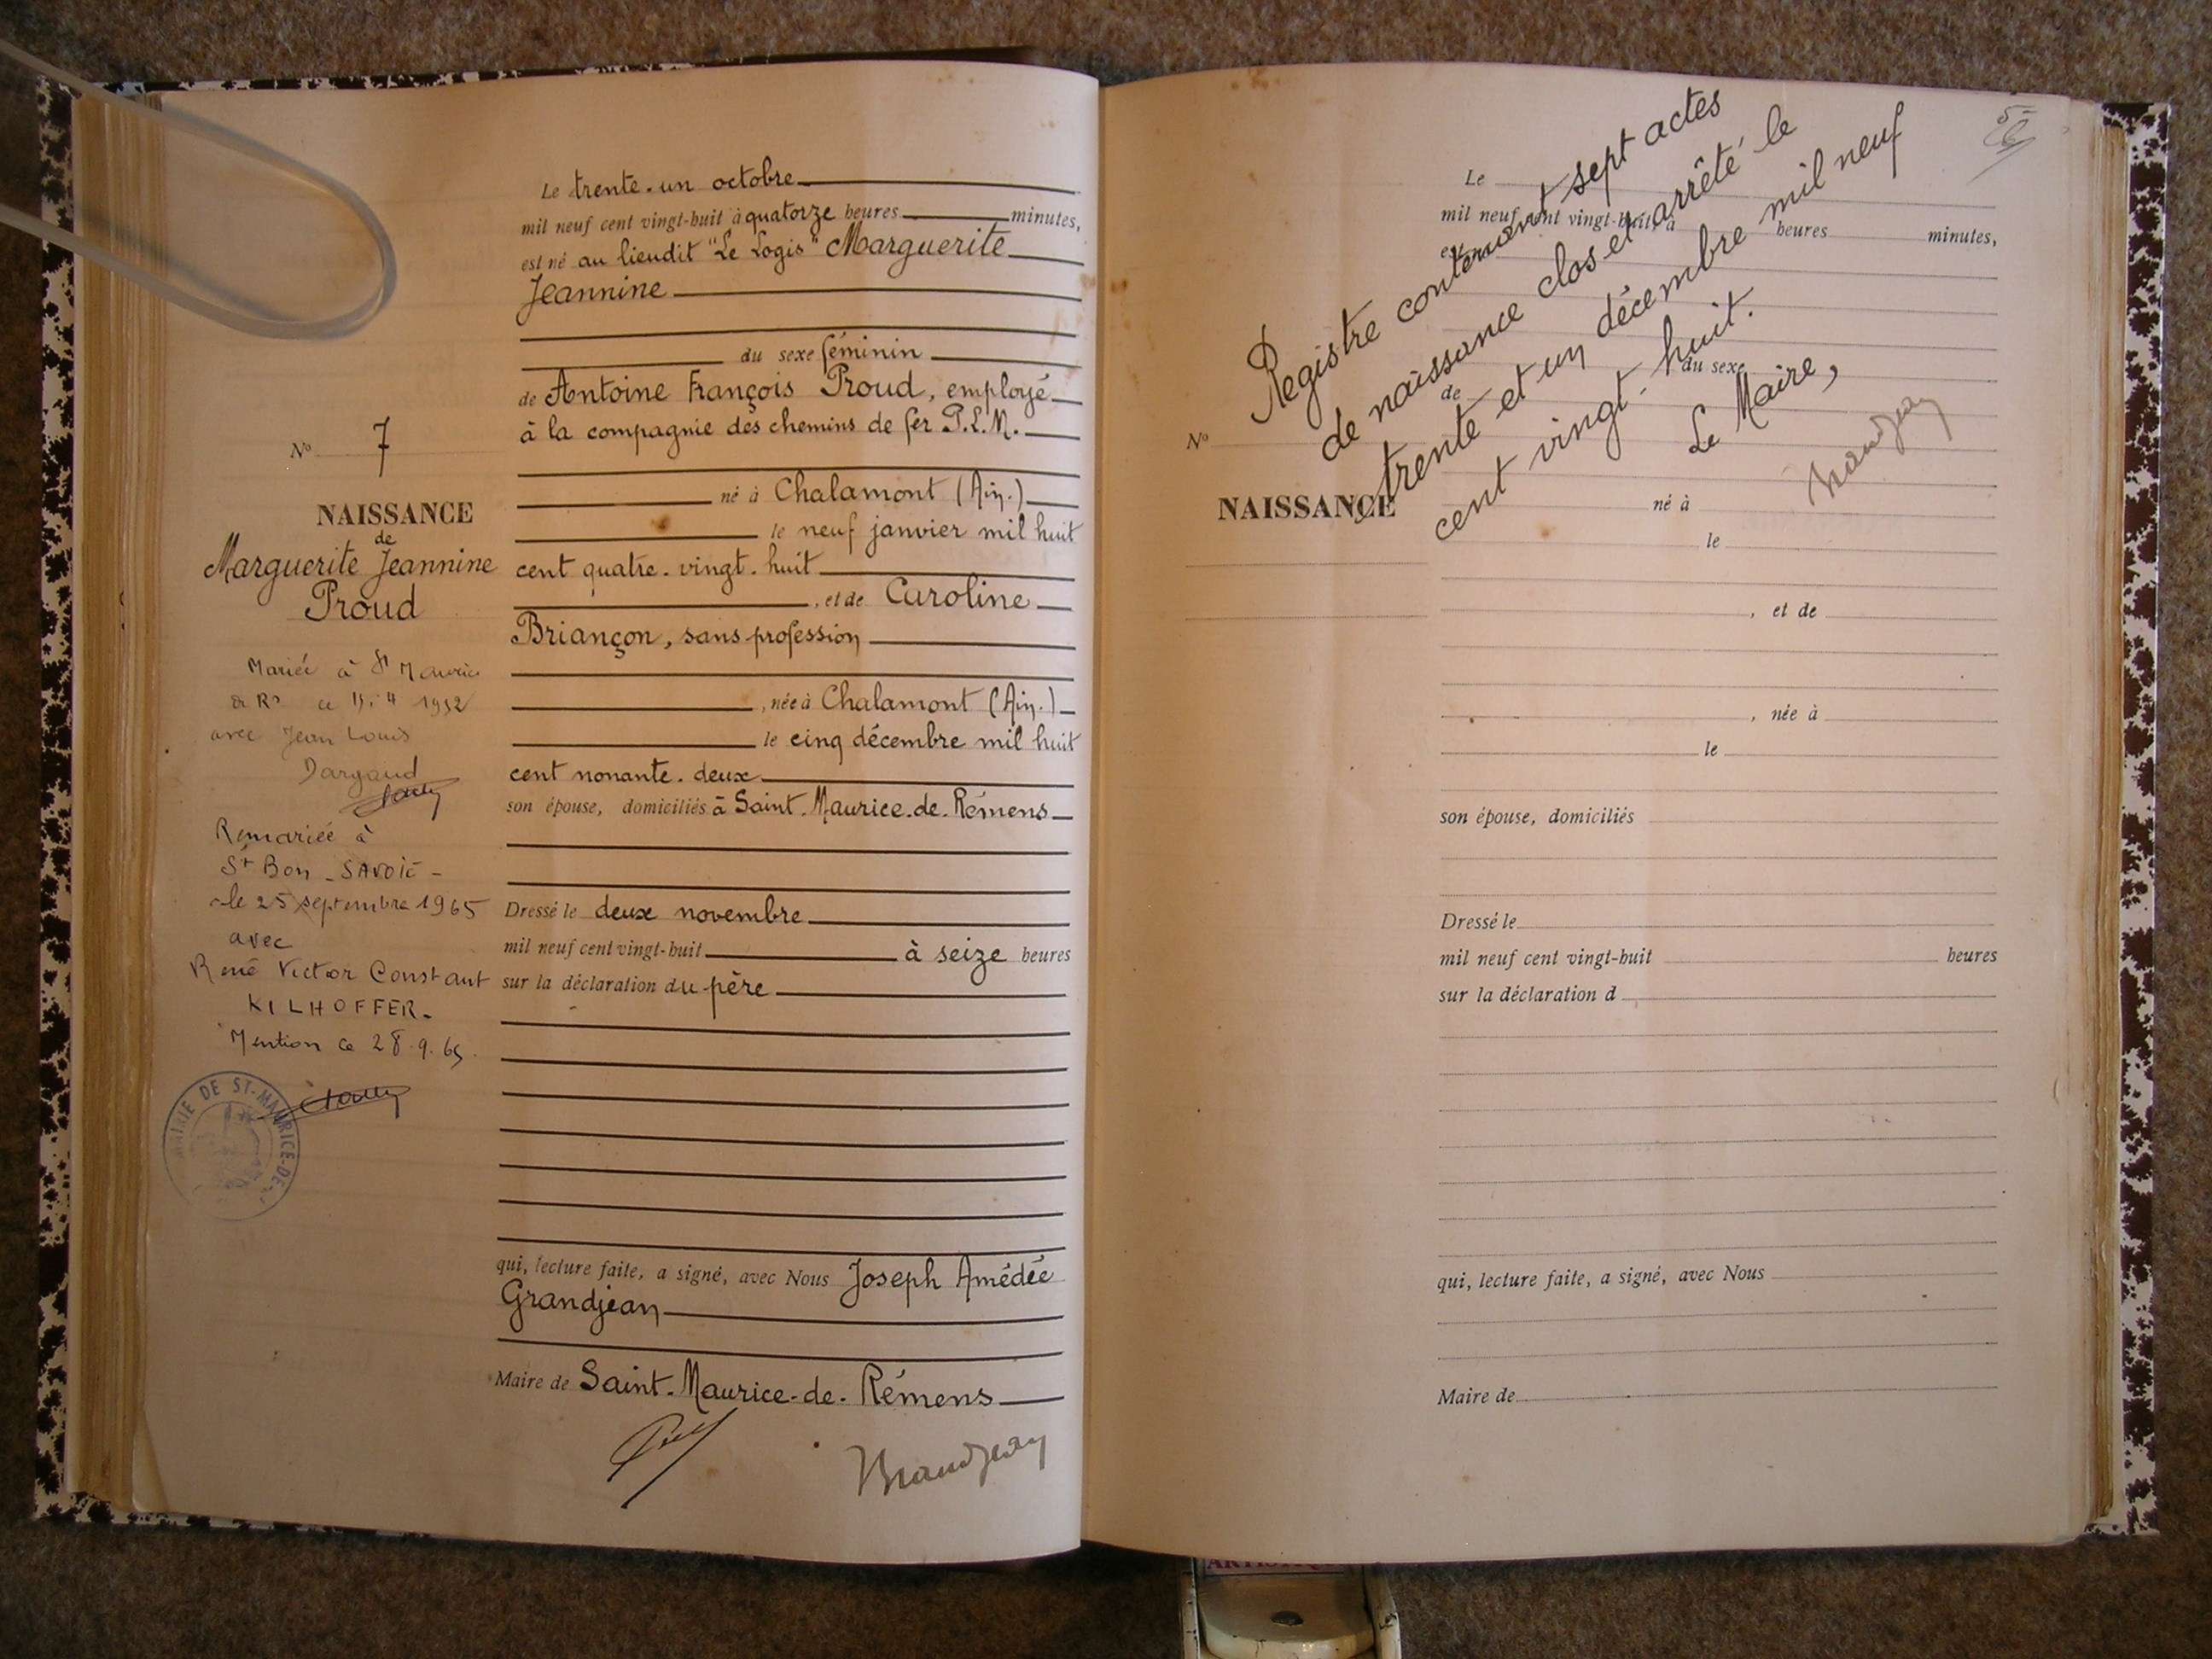 Le trente-un octobre
mil neuf cent vingt-huit à quatorze heures minutes,
est né au lieudit "Le Logis" Marguerite
Jeannine
du sexe féminin
de Antoine François Proud, employé
à la compagnie des chemins de fer P.L.M.
né à Chalamont (Ain.)
le neuf janvier mil huit
cent quatre-vingt-huit
, et de Caroline
Briançon, sans profession
, née à Chalamont (Ain.)
le cinq décembre mil huit
cent nonante-deux
son épouse, domiciliés à Saint-Maurice-de-Rémens
Dressé le deux novembre
mil neuf cent vingt-huit à seize heures
sur la déclaration du père
qui, lecture faite, a signé, avec Nous Joseph Amédée
Grandjean
Maire de Saint-Maurice-de-Rémens
Grandjean
No 7
NAISSANCE
de
Marguerite Jeannine
Proud
Mariée à St Maurice
de Rs le 4 1952
avec Jean Louis
Dargaud
Remariée à
St Bon - SAVOIE -
le 25 septembre 1965
avec
René Victor Constant
KILHOFFER.
Mention le 28.9.65.
MAIRIE DE ST-MAURICE-DE-
5
Registre contenant sept actes
de naissance clos et arrêté le
trente et un décembre mil neuf
cent vingt-huit.
Le Maire,
Grandjean
Le
mil neuf cent vingt-huit à heures minutes,
est
du sexe
de
No
NAISSANCE
né à
le
, et de
, née à
le
son épouse, domiciliés
Dressé le
mil neuf cent vingt-huit heures
sur la déclaration d
qui, lecture faite, a signé, avec Nous
Maire de